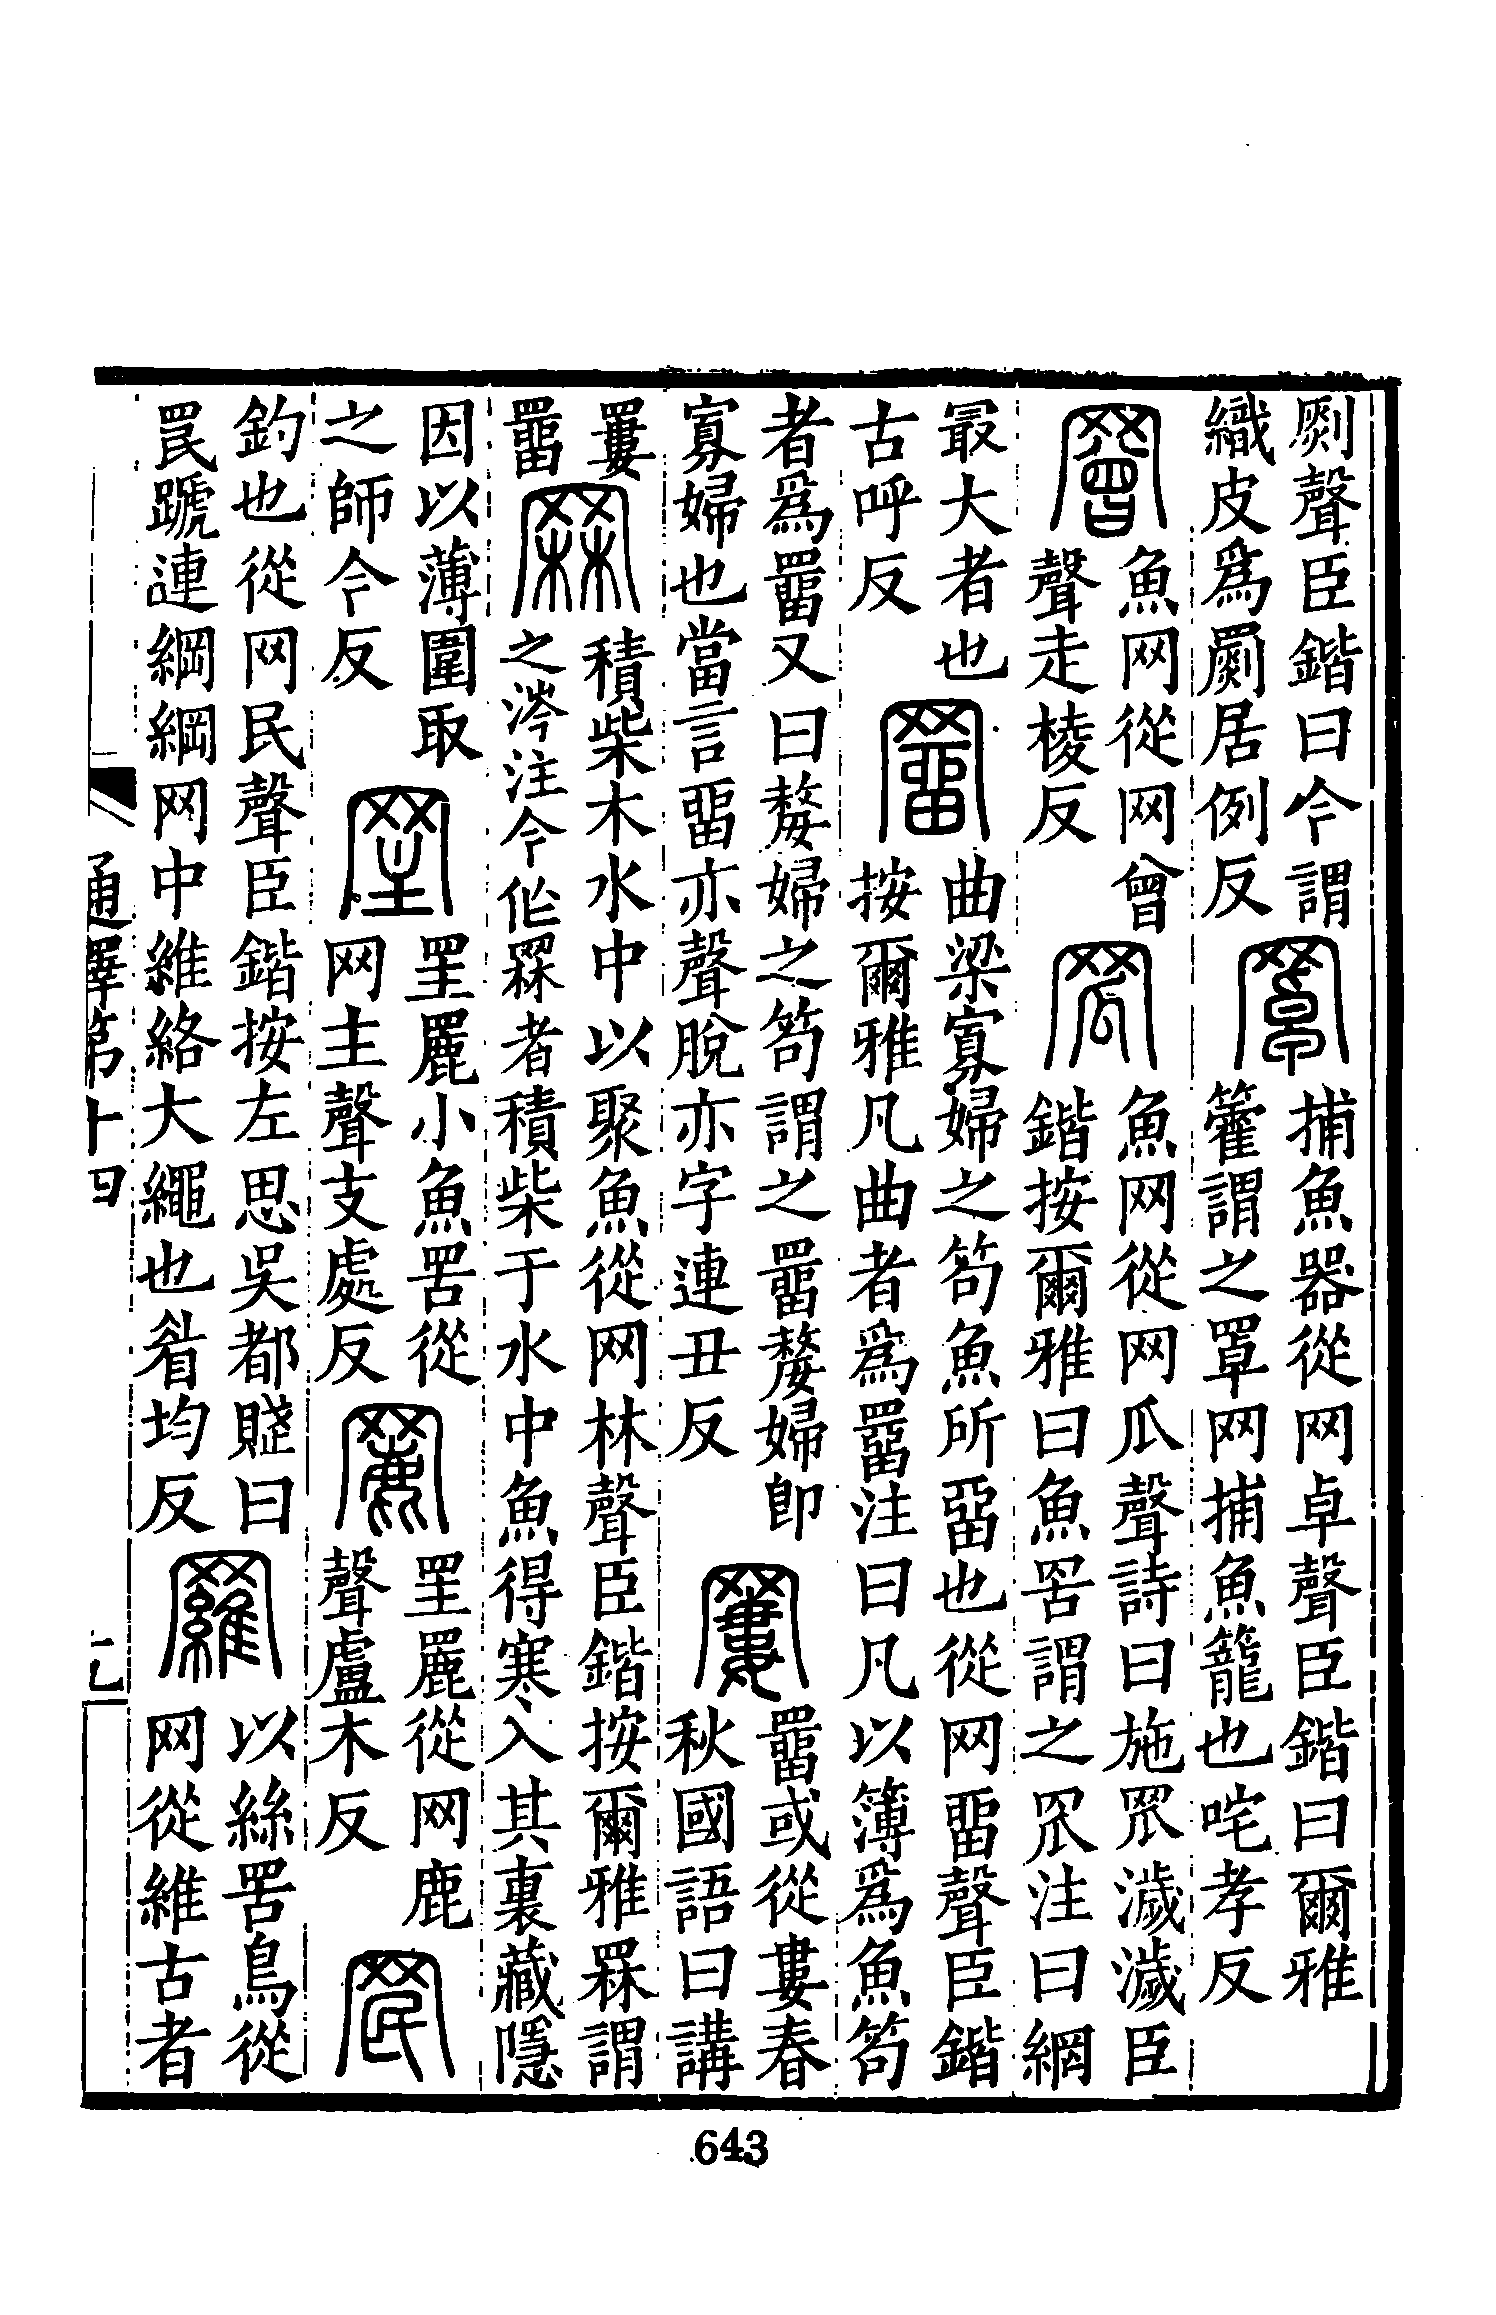 劂聲臣鍇曰今謂
織皮爲罽居例反
罩
捕魚器從网卓聲臣鍇曰爾雅
籗謂之罩网捕魚籠也咤孝反
罾
魚网從网曾
聲走棱反
罛
魚网從网瓜聲詩曰施罛濊濊臣
鍇按爾雅曰魚罟謂之罛注曰網
最大者也
古呼反
罶
曲梁寡婦之笱魚所畱也從网畱聲臣鍇
按爾雅凡曲者爲罶注曰凡以簿爲魚笱
者爲罶又曰嫠婦之笱謂之罶嫠婦即
寡婦也當言畱亦聲脫亦字連丑反
𦌁
罶或從婁春
秋國語曰講
𦌁
罶
罧
積柴木水中以聚魚從网林聲臣鍇按爾雅罧謂
之涔注今作罧者積柴于水中魚得寒入其裏藏隱
因以薄圍取
之師今反
罜
罜䍡小魚罟從
网主聲支處反
䍡
罜䍡從网鹿
聲盧木反
罠
釣也從网民聲臣鍇按左思吳都賦曰
罠蹏連綱綱网中維絡大繩也眉均反
羅
以絲罟鳥從
网從維古者
通釋第十四
643